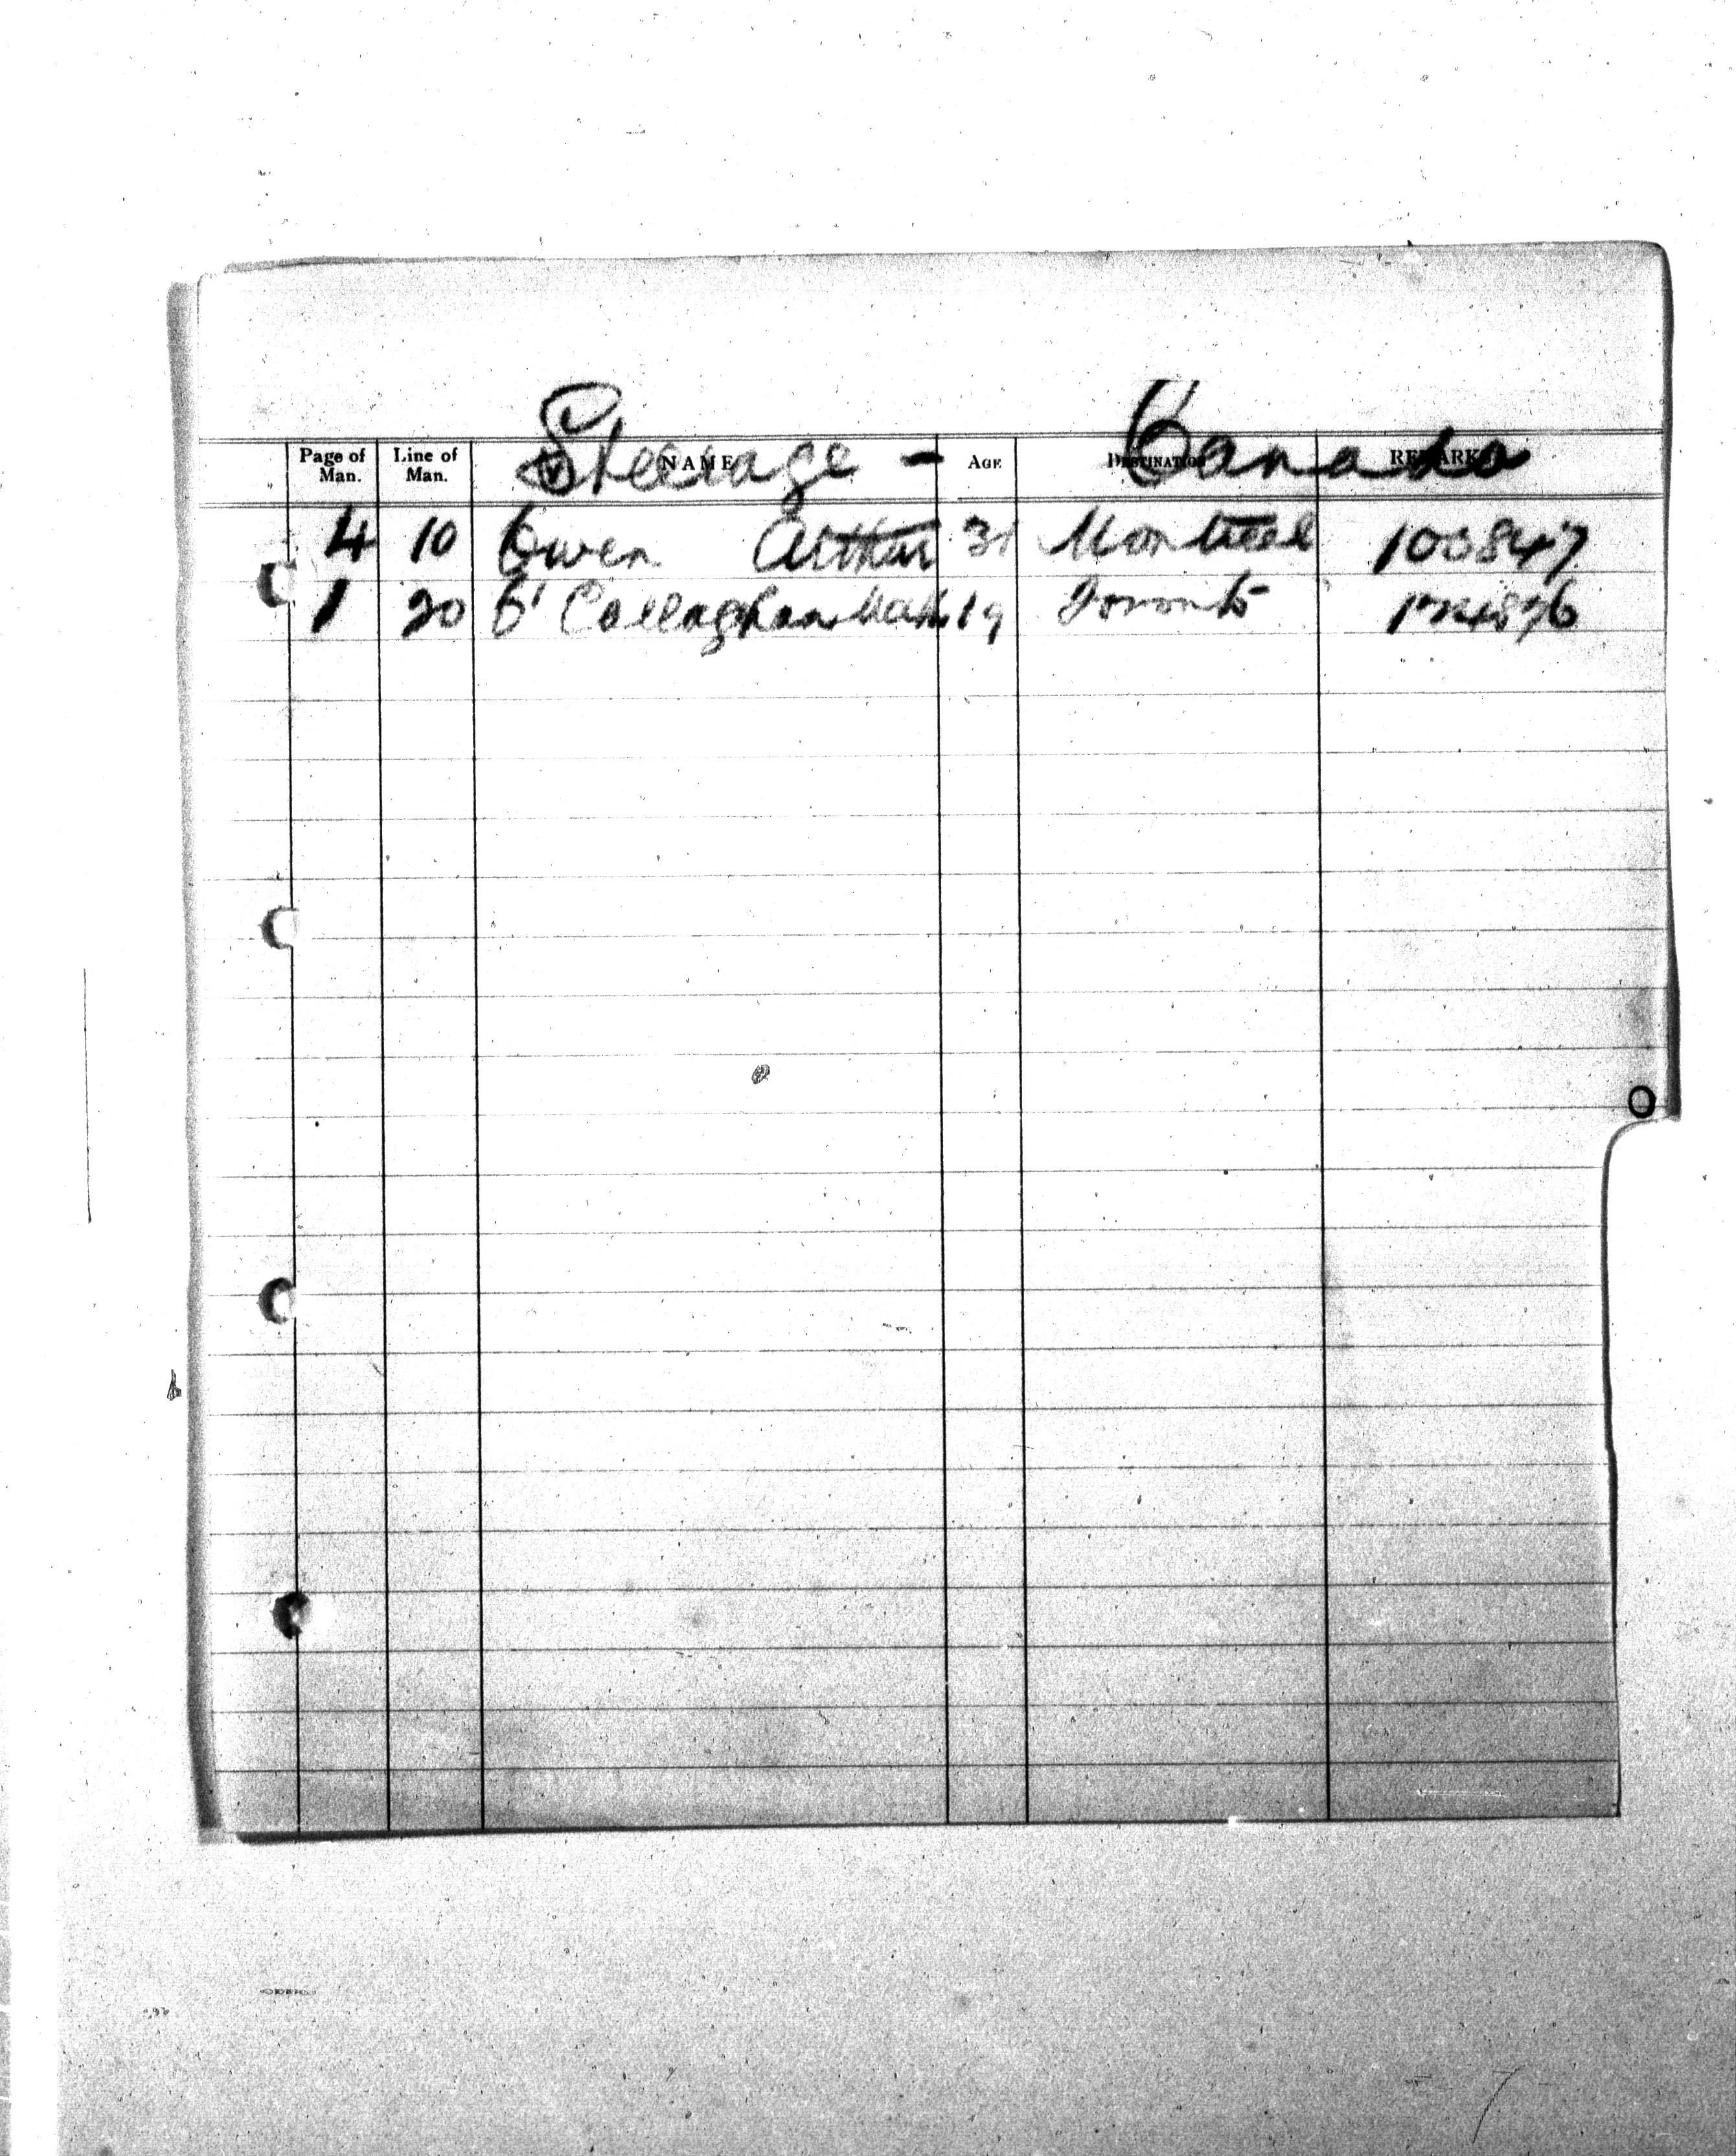 Steerage - Canada
Page of Man. Line of Man. NAME AGE DESTINATION REMARKS
4 10 Owen Arthur 31 Montreal 100847
1 20 O'Callaghan 19 Toronto
O